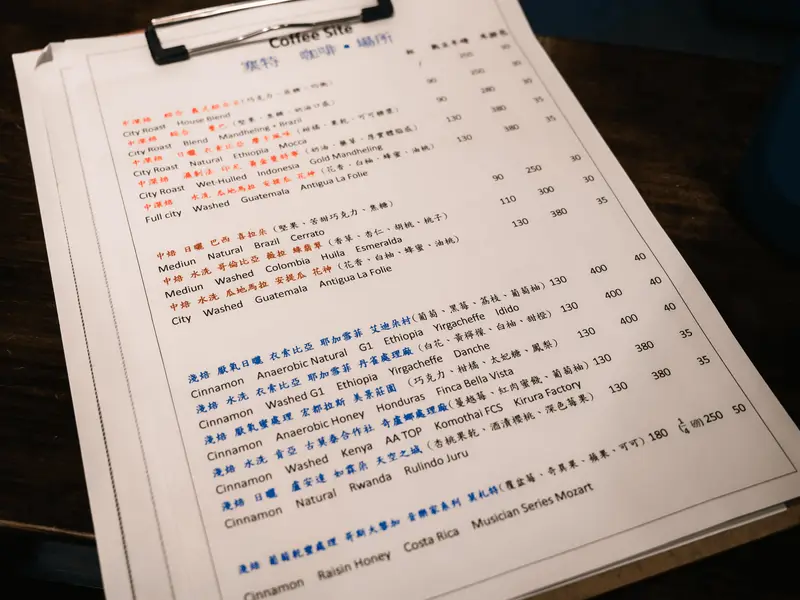 Coffee Site
塞特 咖啡·場所
中深焙 綜合 義式綜合豆(巧克力、焦糖、奶油) 250 30
City Roast House Blend
中深焙 綜合 曼巴(堅果、焦糖、奶油口感) 90 250 30
City Roast Blend Mandheling+Brazil
中深焙 日曬 衣索比亞 摩卡風味(柑橘、果乾、可可糖漿) 90 280 30
City Roast Natural Ethiopia Mocca
中深焙 濕剝法 印尼 黃金曼特寧(奶油、藥草、厚實體脂感) 130 380 35
City Roast Wet-Hulled Indonesia Gold Mandheling
中深焙 水洗 瓜地馬拉 安提瓜 花神(花香、白柚、蜂蜜、油桃) 130 380 35
Full city Washed Guatemala Antigua La Folie
中焙 日曬 巴西 喜拉朵(堅果、苦甜巧克力、焦糖) 90 250 30
Mediun Natural Brazil Cerrato
中焙 水洗 哥倫比亞 薇拉 綠翡翠(香草、杏仁、胡桃、桃子) 110 300 30
Mediun Washed Colombia Huila Esmeralda
中焙 水洗 瓜地馬拉 安提瓜 花神(花香、白柚、蜂蜜、油桃) 130 380 35
City Washed Guatemala Antigua La Folie
淺焙 厭氧日曬 衣索比亞 耶加雪菲 艾迪朵村(葡萄、黑莓、荔枝、葡萄柚) 130 400 40
Cinnamon Anaerobic Natural G1 Ethiopia Yirgacheffe Idido
淺焙 水洗 衣索比亞 耶加雪菲 丹雀處理廠(白花、黃檸檬、白柚、甜橙) 130 400 40
Cinnamon Washed G1 Ethiopia Yirgacheffe Danche
淺焙 厭氧蜜處理 宏都拉斯 美景莊園 (巧克力、柑橘、太妃糖、鳳梨) 130 400 40
Cinnamon Anaerobic Honey Honduras Finca Bella Vista
淺焙 水洗 肯亞 古莫泰合作社 奇盧娜處理廠(蔓越莓、紅肉蜜餞、葡萄柚) 130 380 35
Cinnamon Washed Kenya AA TOP Komothai FCS Kirura Factory
淺焙 日曬 盧安達 如霖朵 天空之城(杏桃果乾、酒漬櫻桃、深色莓果) 130 380 35
Cinnamon Natural Rwanda Rulindo Juru
淺焙 葡萄乾蜜處理 哥斯大黎加 音樂家系列 莫札特(覆盆莓、奇異果、蘋果、可可) 180 (1/4磅) 250 50
Cinnamon Raisin Honey Costa Rica Musician Series Mozart